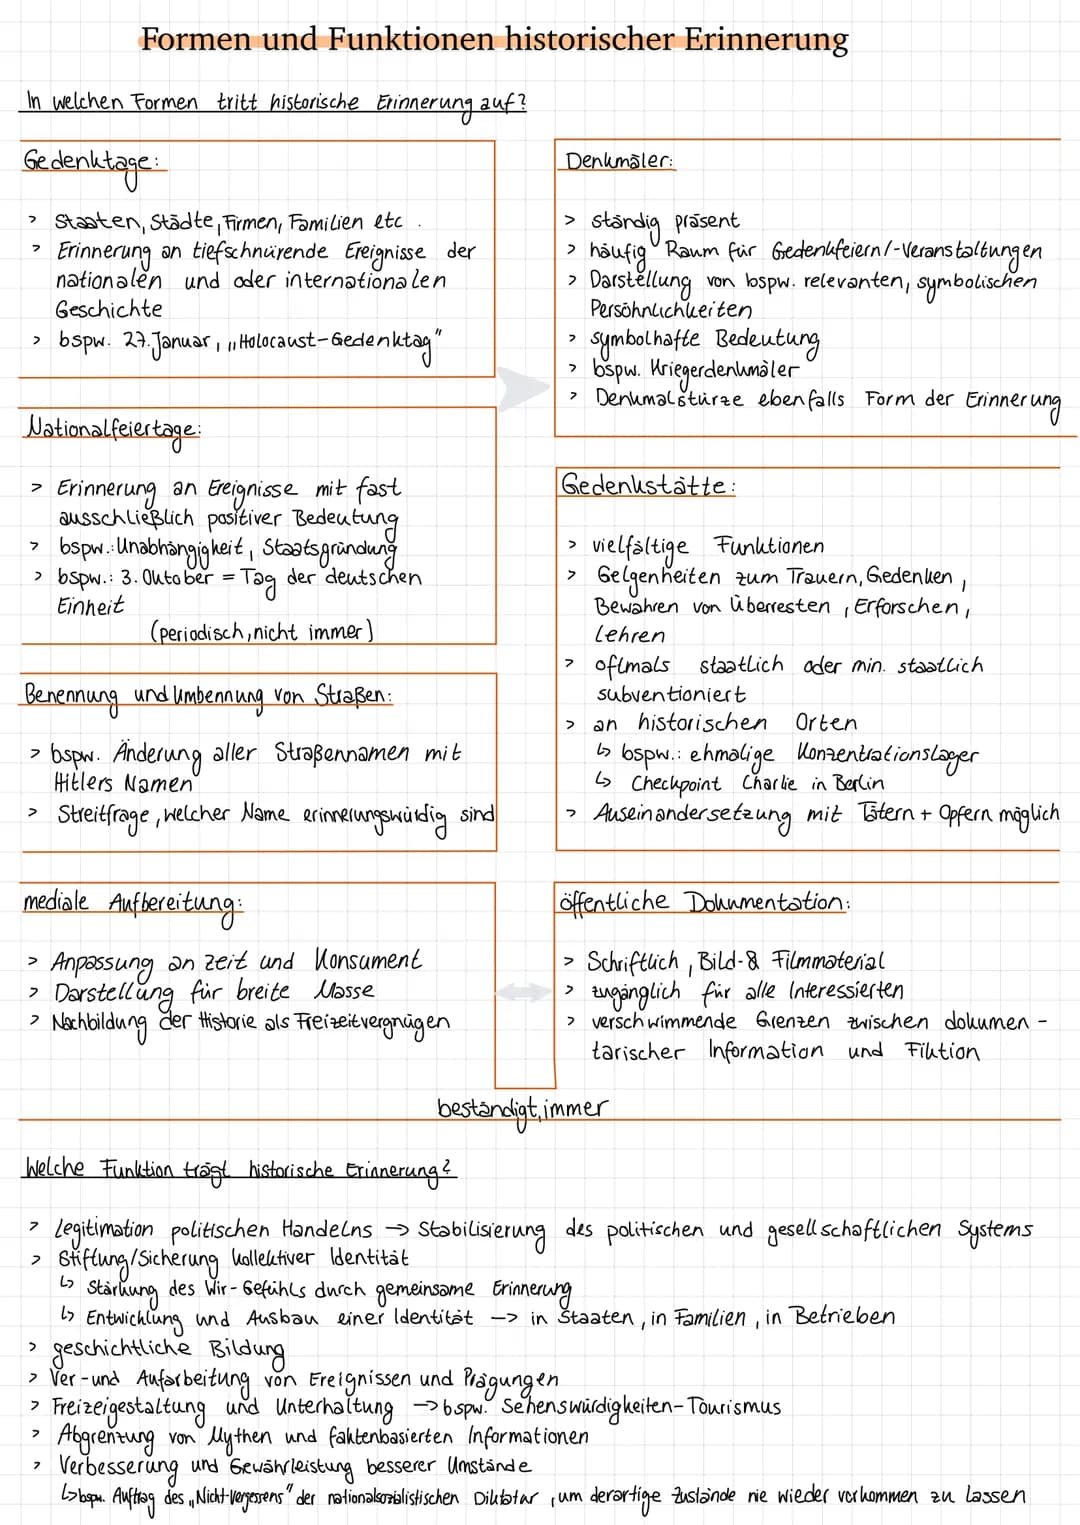 Formen und Funktionen historischer Erinnerung
In welchen Formen tritt historische Erinnerung auf?
Gedenktage:
> Staaten, Städte, Firmen, Familien etc.
> Erinnerung an tiefschnürende Ereignisse der
nationalen und oder internationalen
Geschichte
> bspw. 27. Januar, „Holocaust-Gedenktag"
Nationalfeiertage:
> Erinnerung an Ereignisse mit fast
ausschließlich positiver Bedeutung
> bspw.: Unabhängigkeit, Staatsgründung
> bspw.: 3. Oktober = Tag der deutschen
Einheit
(periodisch, nicht immer)
Benennung und Umbennung von Straßen:
> bspw. Änderung aller Straßennamen mit
Hitlers Namen
> Streitfrage, welcher Name erinnerungswürdig sind
Denkmäler:
> ständig präsent
> häufig Raum für Gedenkfeiern/-Veranstaltungen
> Darstellung von bspw. relevanten, symbolischen
Persöhnlichkeiten
> symbolhafte Bedeutung
> bspw. Kriegerdenkmäler
> Denkmalstürze ebenfalls Form der Erinnerung
Gedenkstätte:
> vielfältige Funktionen
> Gelgenheiten zum Trauern, Gedenken,
Bewahren von Überresten, Erforschen,
Lehren
> oftmals staatlich oder min. staatlich
subventioniert
> an historischen Orten
↳ bspw.: ehmalige Konzentrationslager
↳ Checkpoint Charlie in Berlin
> Auseinandersetzung mit Tätern + Opfern möglich
mediale Aufbereitung:
> Anpassung an Zeit und Konsument
> Darstellung für breite Masse
> Nachbildung der Historie als Freizeitvergnügen
öffentliche Dokumentation:
> Schriftlich, Bild- & Filmmaterial
> zugänglich für alle Interessierten
> verschwimmende Grenzen zwischen dokumen-
tarischer Information und Fiktion
beständigt, immer
Welche Funktion trägt historische Erinnerung?
> Legitimation politischen Handelns → Stabilisierung des politischen und gesellschaftlichen Systems
> Stiftung/Sicherung kollektiver Identität
↳ Stärkung des Wir-Gefühls durch gemeinsame Erinnerung
↳ Entwicklung und Ausbau einer Identität → in Staaten, in Familien, in Betrieben
> geschichtliche Bildung
> Ver- und Aufarbeitung von Ereignissen und Prägungen
> Freizeigestaltung und Unterhaltung → bspw. Sehenswürdigkeiten-Tourismus
> Abgrenzung von Mythen und faktenbasierten Informationen
> Verbesserung und Gewährleistung besserer Umstände
↳ bspw. Auftrag des „Nicht-Vergessens" der nationalsozialistischen Diktatur, um derartige Zustände nie wieder vorkommen zu lassen